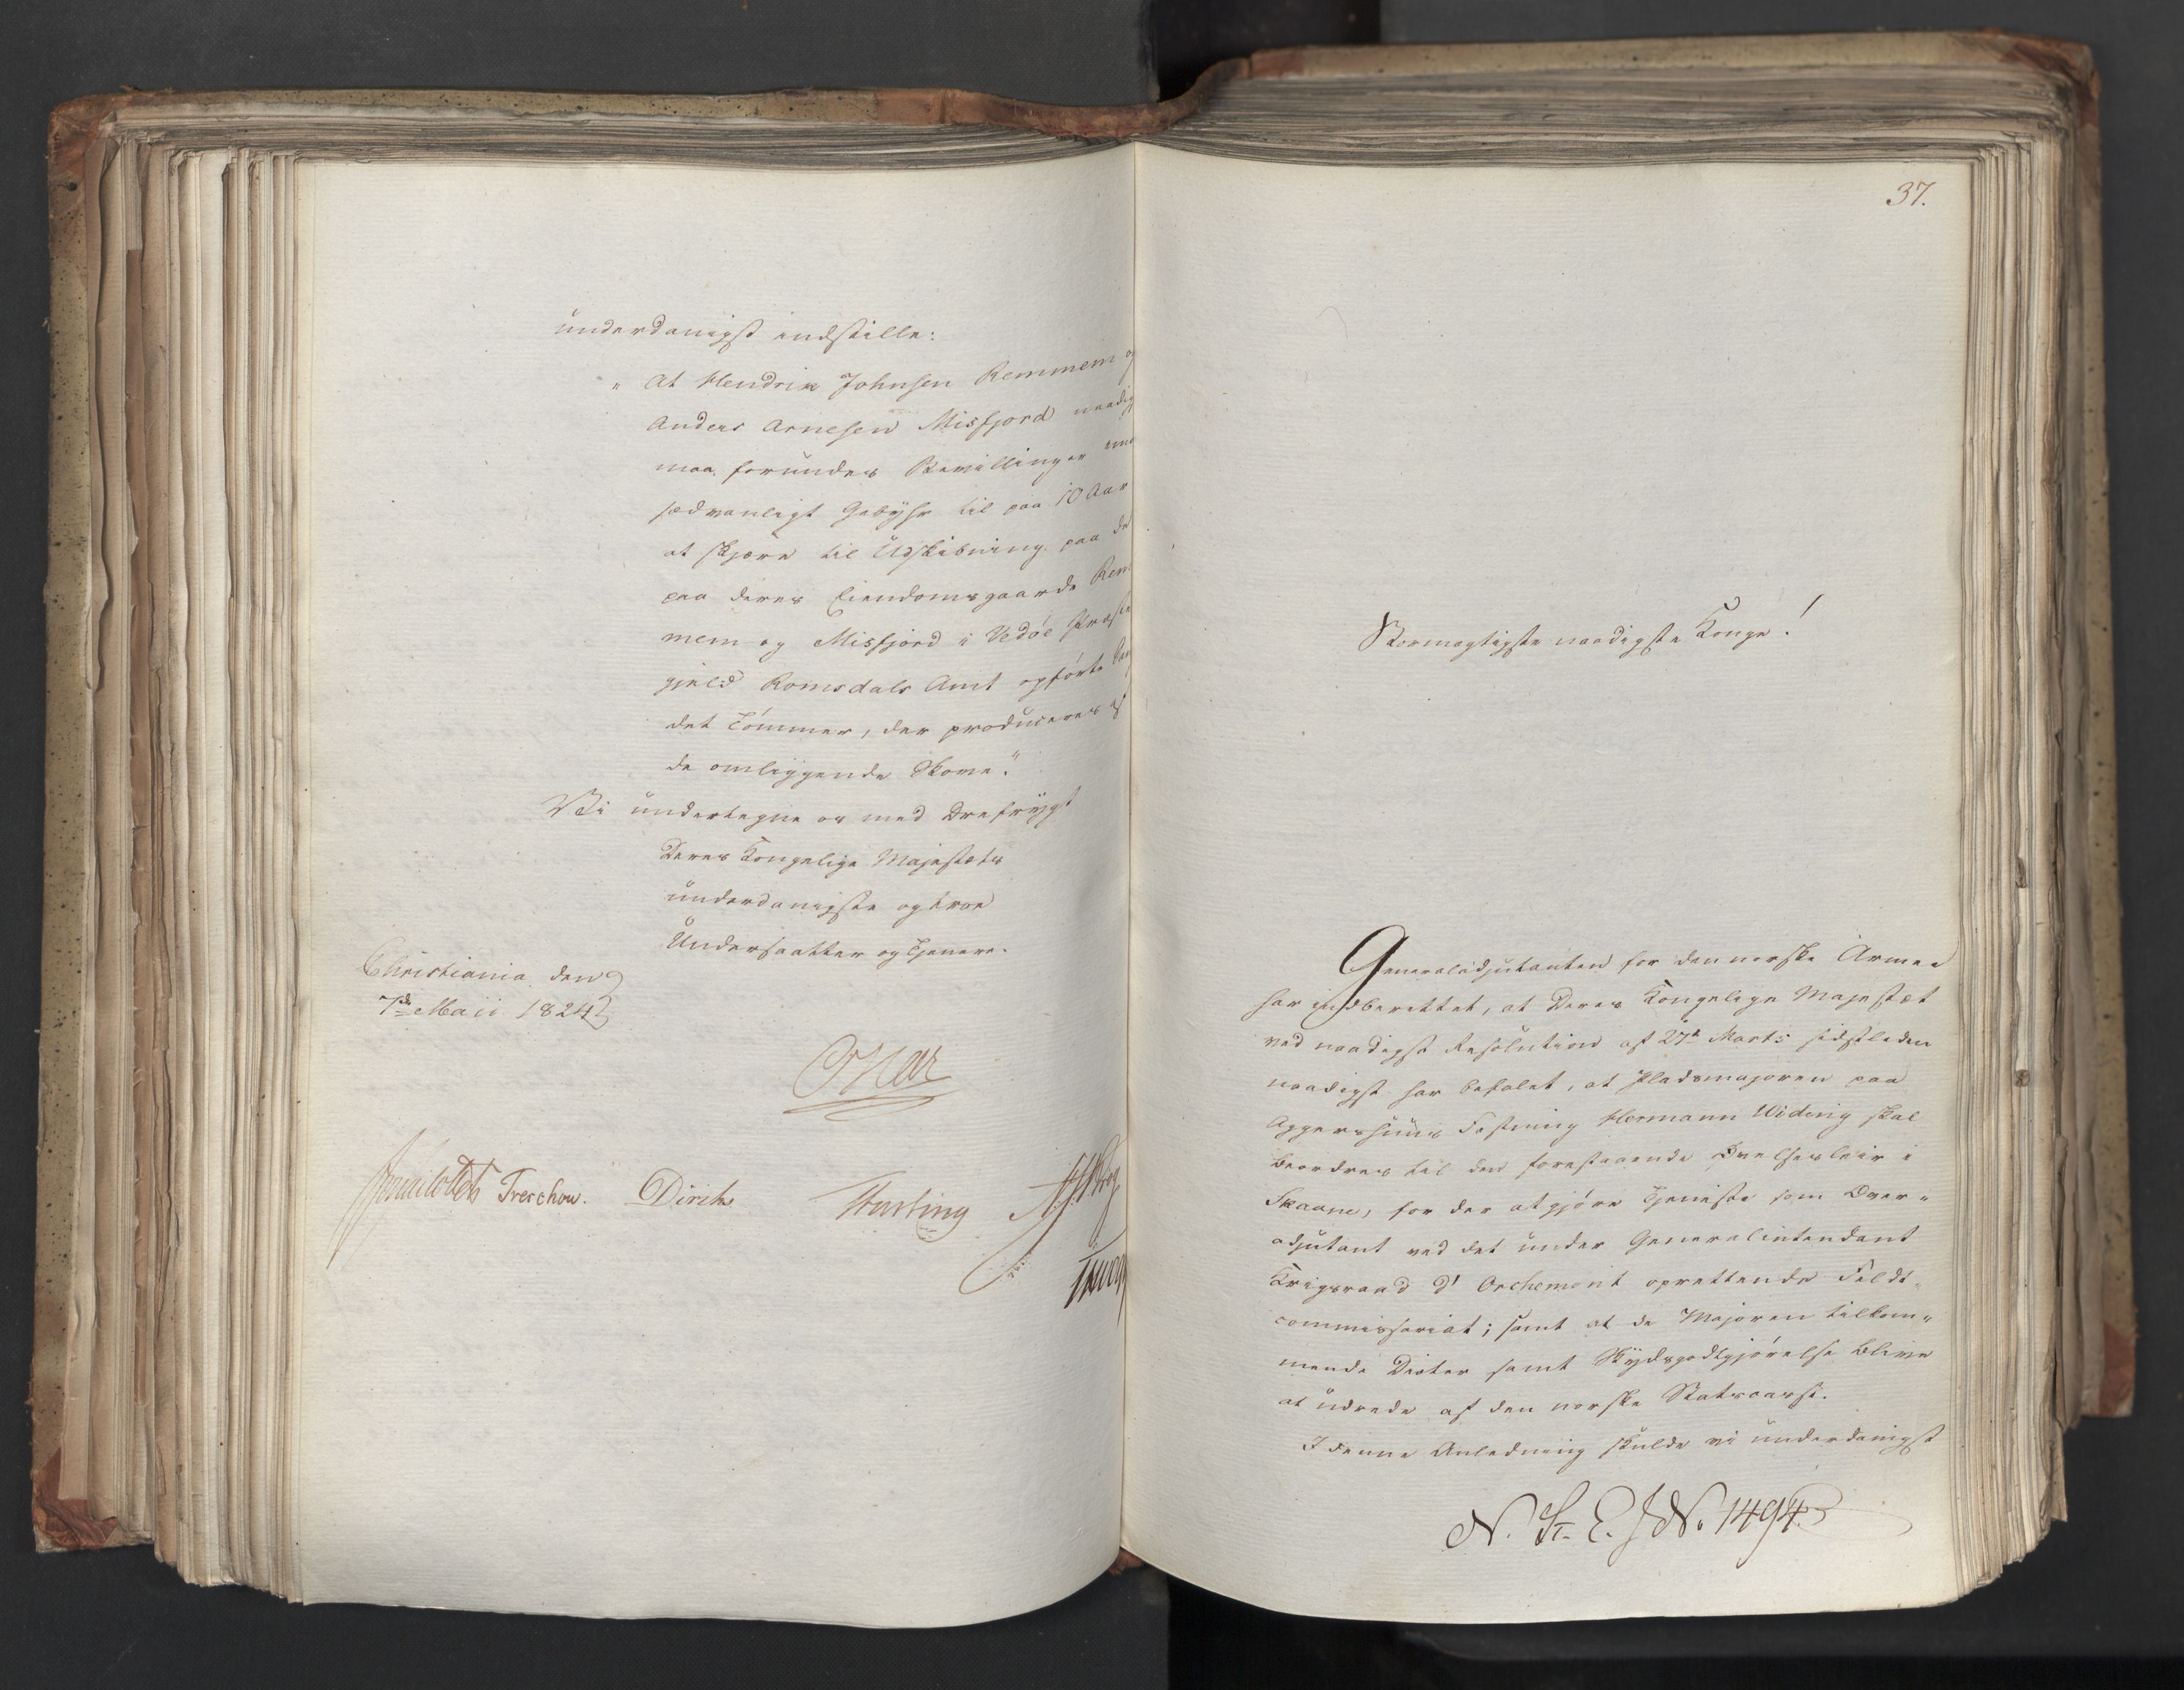 underdanigst indstille:
" At Hendrik Johnsen Remmem og
Anders Arnesen Misfjord naadig
maa forundes Bevillinger mod
sædvanligt Gebÿhr til paa 10 Aar
at skjære til Udskibning paa de
paa deres Eiendomsgaarde Rem
mem og Misfjord i Vedøe Præste
gjeld Romsdals Amt opførte Sauge
det Tømmer, der produceres af
de omliggende Skove."
Vi undertegne os med Ærefrÿgt
Deres Kongelige Majestæts
underdanigste og troe
Undersaatter og Tjenere.
Christiania den
7de Maii 1824
Oscar
Treschow. Diriks
37.
Stormægtigste naadigste Konge!
Generaladjutanten for den norske Armee
har indberettet, at Deres Kongelige Majestæt
ved naadigst Resolution af 27de Marts sidstleden
naadigst har befalet, at Pladsmajoren paa
Aggershuus Fæstning Hermann Widing skal
beordres til den forestaaende Øvelsesleir i
Skaane, for der at gjøre Tjeneste som Over-
adjutant ved det under Generalintendant
Krigsraad d'Orchemont oprettende Feldt-
commissariat; samt at de Majoren tilkom-
mende Dieter samt Skÿdsgodtgjørelse blive
at udrede af den norske Statscasse.
I denne Anledning skulde vi underdanigst
N. St. E. J. N. 1494